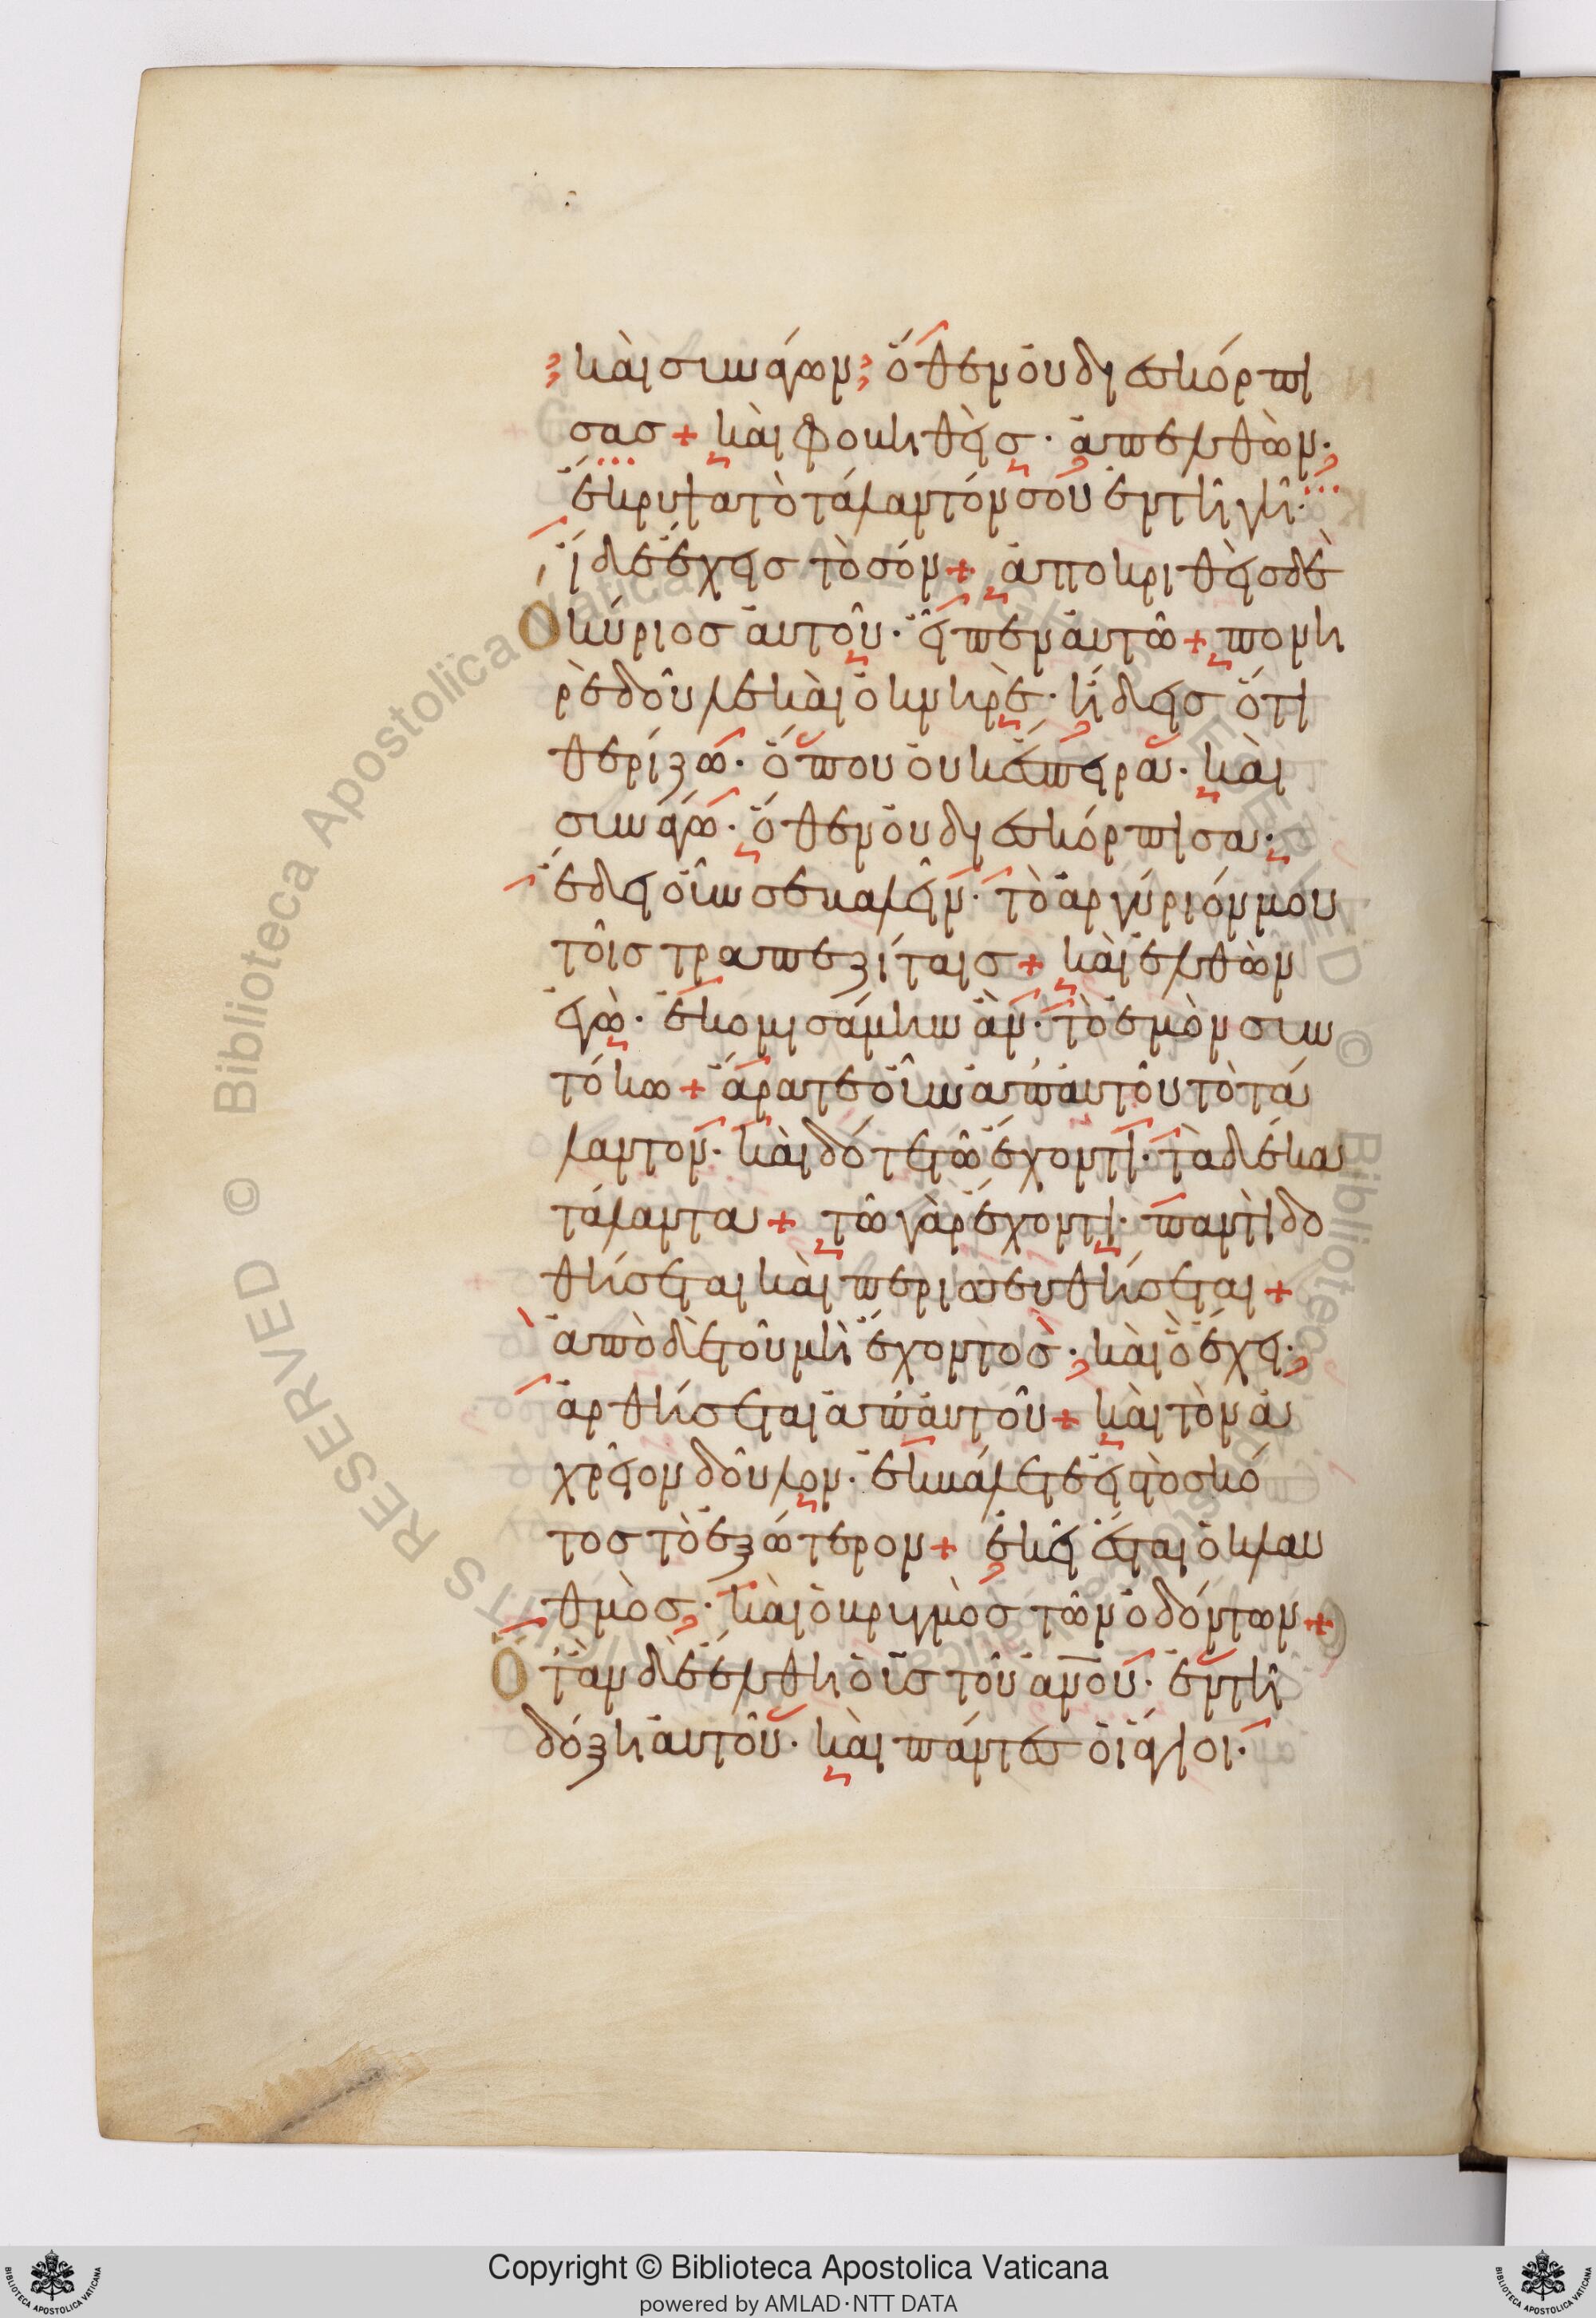 καὶ συνάγων· ὅθεν οὐ διεσκόρπι
σας + καὶ φοβηθεὶς· ἀπελθὼν·
ἔκρυψα τὸ τάλαντόν σου ἐν τῆ γῆ·
ἴδε ἔχεις τὸ σόν + ἀποκριθεὶς δὲ
Ὁ κύριος αὐτοῦ· εἶπεν αὐτῶ + πονη
ρὲ δοῦλε καὶ ὀκνηρὲ· ἤδεις ὅτι
θερίζω· ὅπου οὐκ ἔσπειρα· καὶ
συνάγω· ὅθεν οὐ διεσκόρπισα·
ἔδει οὖν σε βαλεῖν· τὸ ἀργύριόν μου
τοῖς τραπεζίταις + καὶ ἐλθὼν
ἐγὼ· ἐκομισάμην ἂν· τὸ ἐμὸν συν
τόκω + ἄρατε οὖν ἀπ' αὐτοῦ τὸ τά
λαντον· καὶ δότε τῶ ἔχοντι· τὰ δέκα
τάλαντα + τῶ γὰρ ἔχοντι· παντὶ δο
θήσεται καὶ περισσευθήσεται +
ἀπὸ δὲ τοῦ μὴ ἔχοντος· καὶ ὃ ἔχει·
ἀρθήσεται ἀπ' αὐτοῦ + καὶ τὸν ἀ
χρεῖον δοῦλον· ἐκβάλετε εἰς τὸ σκό
τος τὸ ἐξώτερον + ἐκεῖ ἔσται ὁ κλαυ
θμὸς· καὶ ὁ βρυγμὸς τῶν ὀδόντων +
Ὅταν δὲ ἔλθη ὁ υς τοῦ ανου· ἐν τῆ
δόξη αὐτοῦ· καὶ πάντες οἱ ἅγιοι·
Copyright © Biblioteca Apostolica Vaticana
powered by AMLAD·NTT DATA